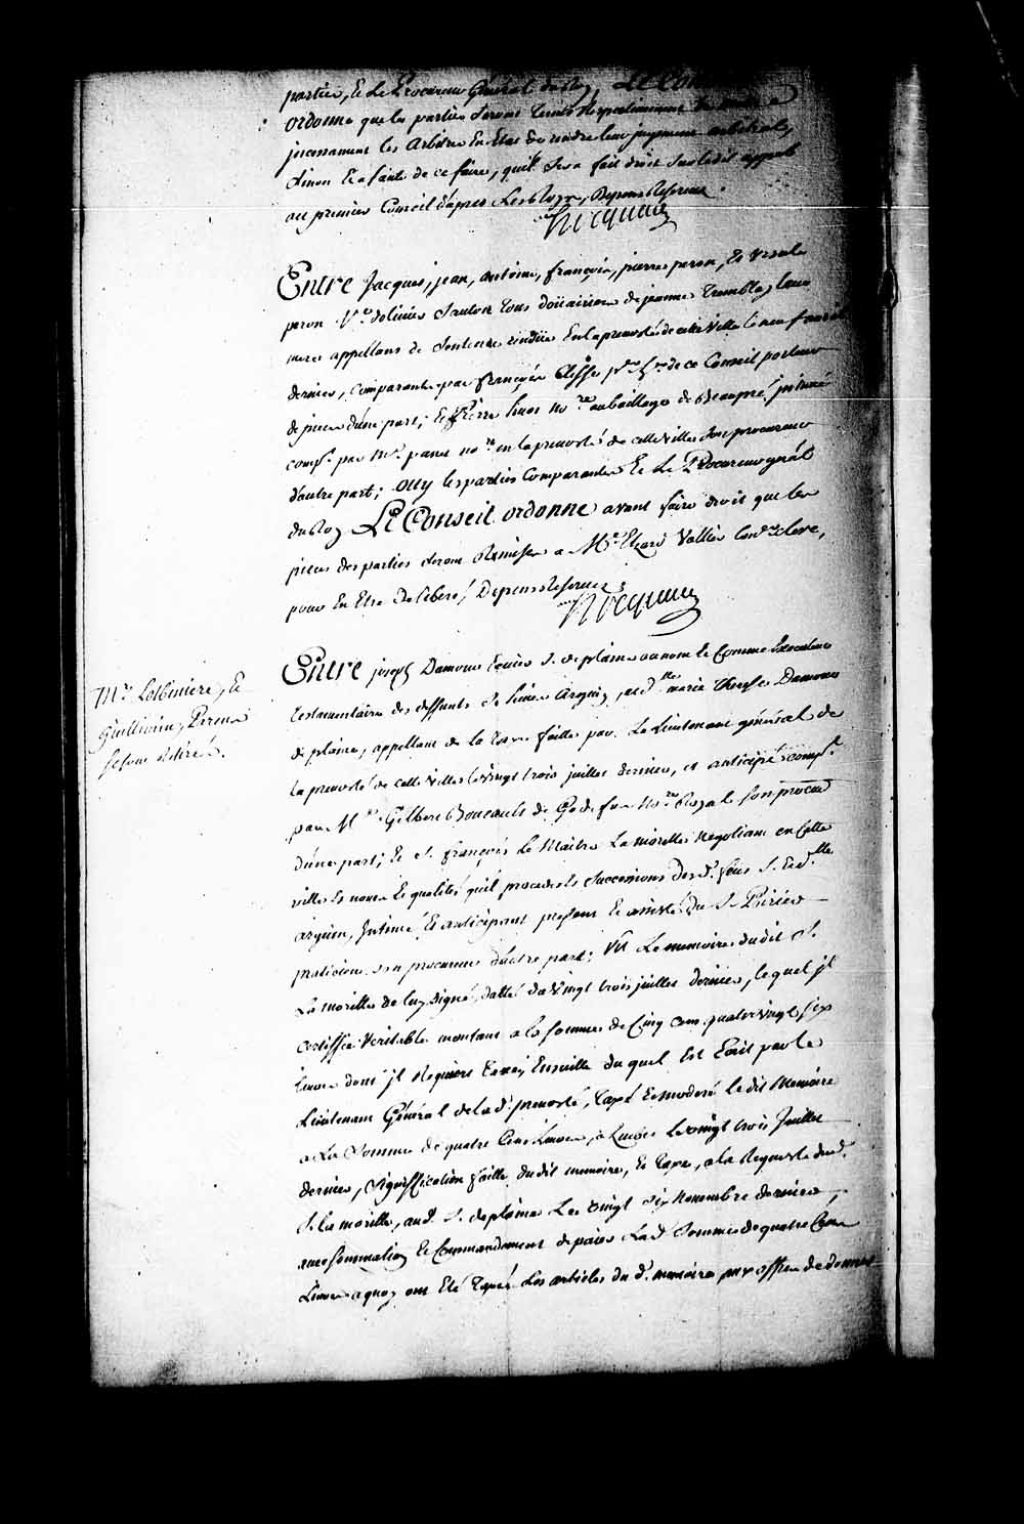 parties, Et Le Procureur Général du Roy, Le Con
ordonne que les parties seront tenus respectivement de mettre
incessament les Arbitres En Etat de rendre leur jugement arbitral,
sinon Et a faute de ce faire, qu'il sera fait droit sur ledit appel
au premier Conseil d'apres Les Roys, Depens Reservez.
Hocquart
Entre Jacques, jean, antoine, françois, pierre peron, Et Ursule
peron Ve d'olivier Saulton tous doüairiers de jeanne Tremblay leur
mere appellans de Sentence rendüe En la prevosté de cette Ville le neuf
dernier, comparants par françois Clesse de ce Conseil porteur
de pieces d'une part; Et Pierre huot nore au baillage de Beaupré, intimé
comp. par Me. panet nore en la prevosté de cette ville son procureur
d'autre part; Oüy les parties Comparantes Et Le Procureur genal
du Roy Le Conseil ordonne avant faire droit que les
pieces des parties seront Remises a Me. Elzard Vallier Coner clerc,
pour En Etre Deliberé, Depens Reservez
Hocquart
Mrs Lotbiniere, Et
Guillimin, Pere
se sont Retirés.
Entre joseph Damour Ecuier S. de plaine au nom Et Comme Executeur
testamentaire des deffunts S. Simon Arguin, et dlle marie Therese Damour
de plaine, appellant de la taxe faitte par Le Lieutenant général de
la prevosté de cette ville le vingt trois juillet dernier, et anticipé comp.
par Me. Gilbert Boucault de Godefus Nore Royal son procur
d'une part; Et S. françois Le Maitre La morille Negotiant en Cette
ville Es noms Et qualités qu'il procede Es Successions des d. feus S. Et dlle
arguin, Intimé Et anticipant present Et assisté du S. Poirier
praticien son procureur d'autre part; Vû Le memoire dudit S.
La morille de luy signé, datté du Vingt trois juillet dernier, lequel jl
certiffie Veritable montant a la somme de Cinq cent quatre vingt six
livres dont jl Requiert Taxe, Ensuitte duquel Est Ecrit par le
Lieutenant Général de la d. prevosté, Taxé Et moderé ledit Memoire
a La Somme de quatre Cent Livres, a Quebec Le vingt trois Juillet
dernier, Signiffication faitte dudit memoire, Et taxe, a la Requeste dud.
S. la morille, aud. S. deplaine Le vingt six Novembre dernier,
avec sommation Et Commandement de paier La d. Somme de quatre Cent
Livres a quoy ont Eté Taxés Les articles du d. memoire par offre de donner